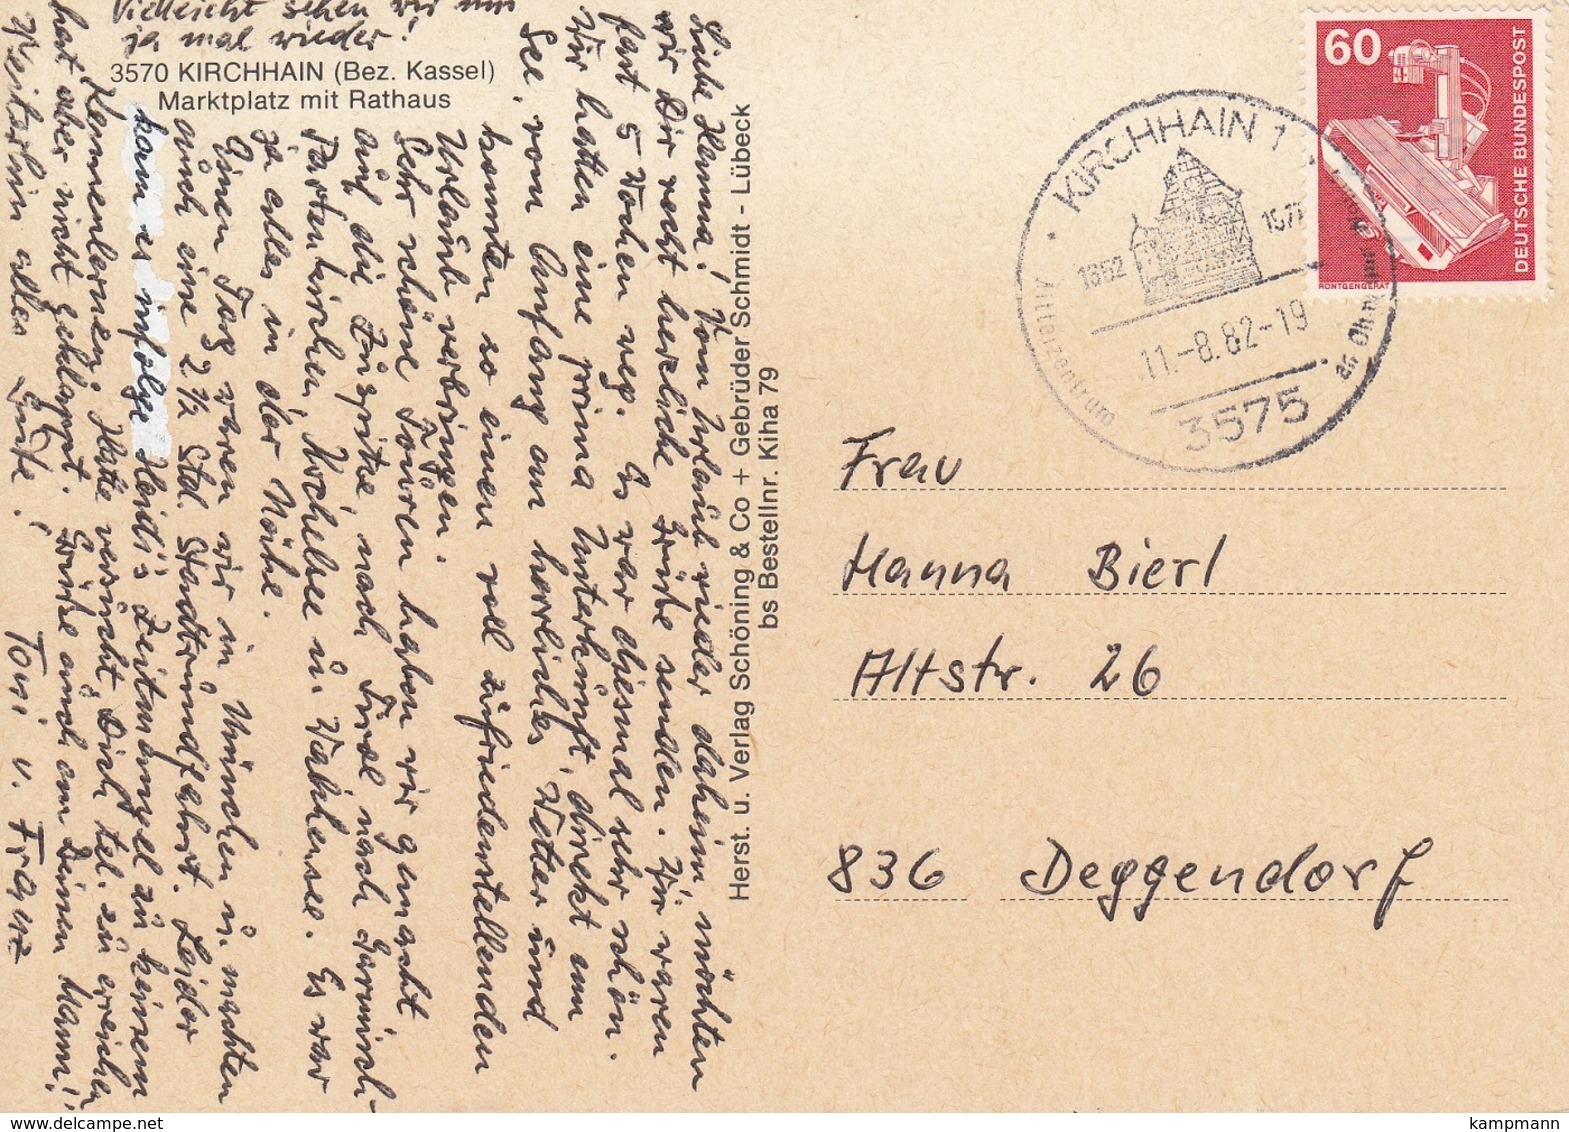 Liebe Hanna! Vom Urlaub wieder daheim, möchten
wir Dir recht herzliche Grüße senden. Wir waren
fast 5 Wochen weg. Es war diesmal sehr schön.
Wir hatten eine prima Unterkunft, direkt am
See, vom Anfang an herrliches Wetter und
konnten so einen voll zufriedenstellenden
Urlaub verbringen.
Sehr schöne Touren haben wir gemacht
auf die Zugspitze, nach Tirol, nach Garmisch-
Partenkirchen, Kochelsee u. Walchensee. Es war
ja alles in der Nähe.
Einen Tag waren wir in München u. machten
auch eine 2 1/2 Std. Stadtrundfahrt. Leider
kam es infolge Heidi's Zeitmangel zu keinem
Kennenlernen. Hatte versucht, Dich tel. zu erreichen
hat aber nicht geklappt. Grüße auch an Deinen Mann!
Weiterhin alles Gute!
Toni u. Franz
Vielleicht sehen wir uns
ja mal wieder!
3570 KIRCHHAIN (Bez. Kassel)
Marktplatz mit Rathaus
Herst. u. Verlag Schöning & Co + Gebrüder Schmidt - Lübeck
bs Bestellnr. Kiha 79
60
DEUTSCHE BUNDESPOST
RÖNTGENGERÄT
KIRCHHAIN 1
1352
11.-8.82-19
3575
Mittelzentrum
an Ohm
Frau
Hanna Bierl
Altstr. 26
836 Deggendorf
kampmann